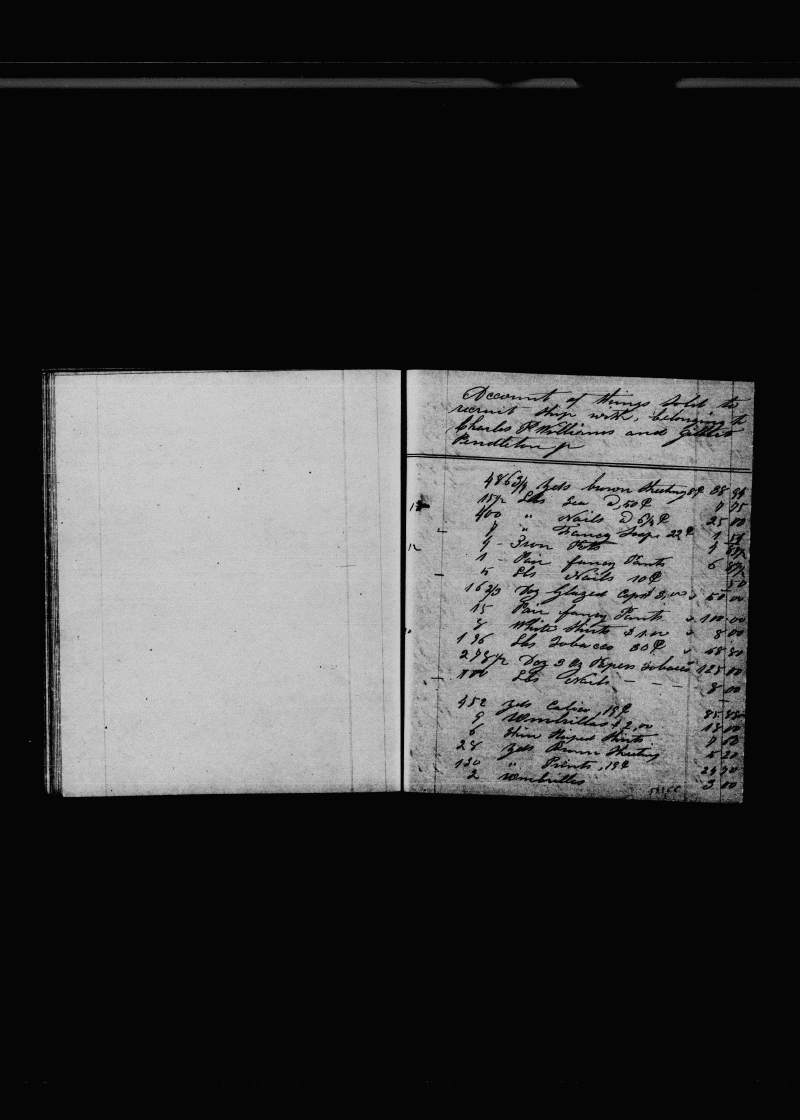 Account of things sold to
recruit ship with, belonging to
Charles P Williams and Gilbert
Pendleton Jr
486 3/4 Yds brown Sheeting 8¢ 38 94
15 1/2 Lbs Tea @ ,50¢ 7 75
400 " Nails @ 6 1/4¢ 25 00
7 " Fancy Soap 22¢ 1 54
4 Iron Pots
1 Pair fancy Pants
5 Lbs Nails 10¢ 50
16 2/3 Doz Glazed Caps 3,00 50 00
15 Pair fancy Pants 100 00
8 White Shirts $1.00 8 00
196 Lbs Tobacco 30¢ 58 80
Doz Papers Tobacco 125 00
100 Lbs Nails 8 00
452 Yds Calico ,19¢ 85 88
9 Umbrellas $2,00 18 00
6 Striped Shirts
Yds Brown Sheeting
130 " Prints ,19¢ 24 70
2 Umbrellas 3 00